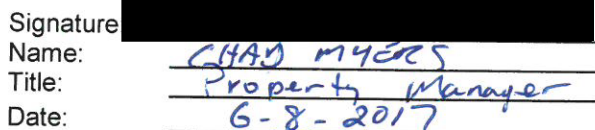 Signature
Name: CHAD MYERS
Title: Property Manager
Date: 6-8-2017